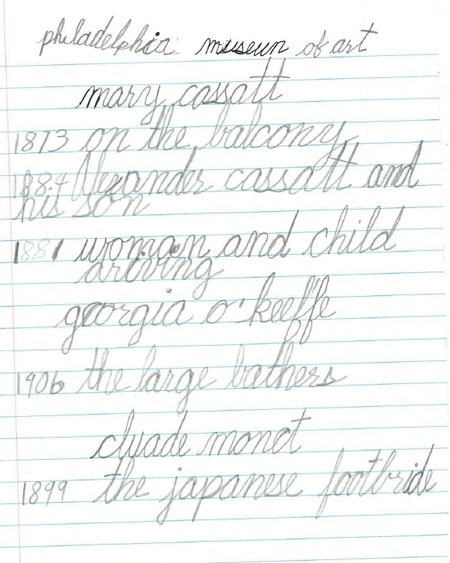 philadelphia museun of art
mary cassatt
1873 on the balcony
1884 Alexander cassatt and
his son
1881 woman and child
driving
georgia o'keeffe
1906 the large bathers
cluade monot
1899 the japanese footbride